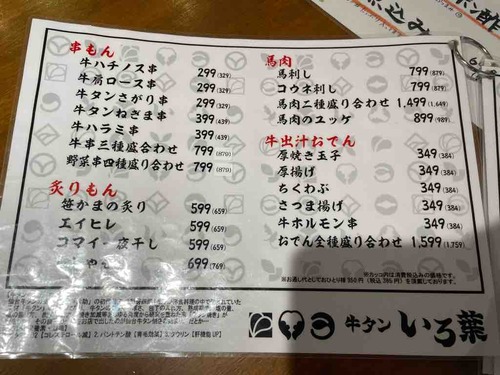 串もん
牛ハチノス串 299(329)
牛肩ロース串 299(329)
牛タンさがり串 299(329)
牛タンねぎま串 399(439)
牛ハラミ串 399(439)
牛串三種盛合わせ 799(879)
野菜串四種盛り合わせ 799(879)
炙りもん
笹かまの炙り 599(659)
エイヒレ 599(659)
コマイ一夜干し 599(659)
699(769)
馬肉
馬刺し 799(879)
コウネ刺し 799(879)
馬肉二種盛り合わせ 1,499(1,649)
馬肉のユッケ 899(989)
牛出汁おでん
厚焼き玉子 349(384)
厚揚げ 349(384)
ちくわぶ 349(384)
さつま揚げ 349(384)
牛ホルモン串 349(384)
おでん全種盛り合わせ 1,599(1,759)
※カッコ内は消費税込みの価格です。
※お通し代としておひとり様350円(税込385円)を頂戴しております。
牛タン いろ葉